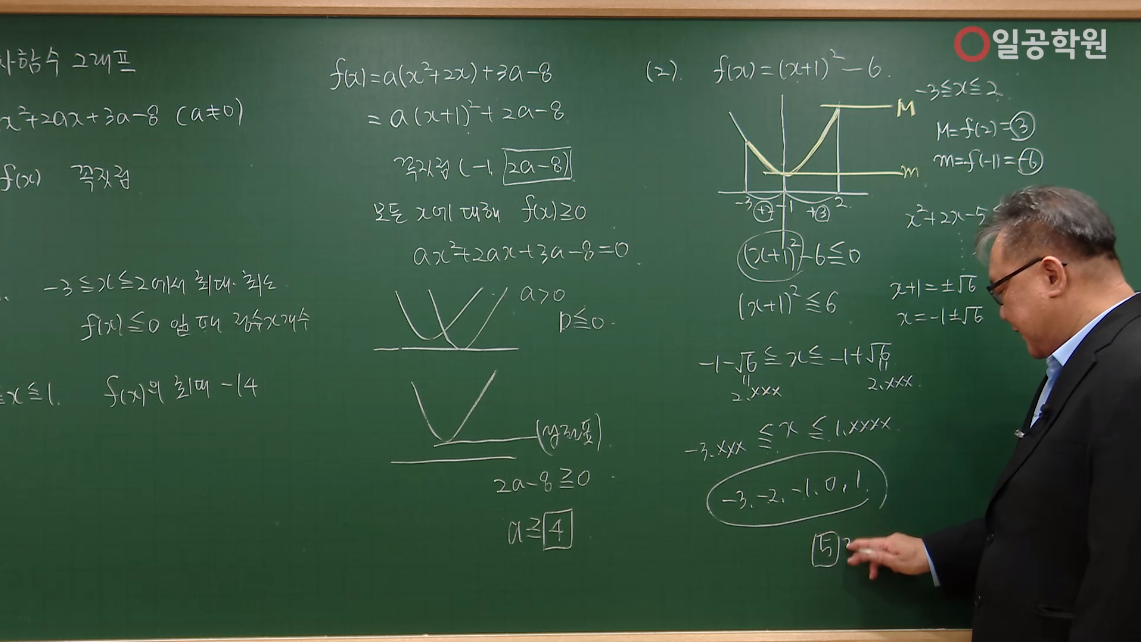 일공학원
차함수 그래프
x²+2ax+3a-8 (a≠0)
f(x) 꼭짓점
-3≦x≦2에서 최대·최소
f(x)≦0 일 때 정수x개수
≦x≦1. f(x)의 최대 -14
f(x)=a(x²+2x)+3a-8
=a(x+1)²+2a-8
꼭짓점 (-1, 2a-8)
모든 x에 대해 f(x)≥0
ax²+2ax+3a-8=0
a>0
D≦0.
2a-8≧0
a≥4
(2). f(x)=(x+1)²-6.
M
m
-3 +2 -1 +3 2
(x+1)²-6≦0
(x+1)²≦6
-1-√6≦x≦-1+√6
2.xxx 2.xxx.
-3.xxx≦x≦1.xxxx
-3, -2, -1, 0, 1.
5
-3≦x≦2
M=f(2)=3
m=f(-1)=-6
x²+2x-5
x+1=±√6
x=-1±√6